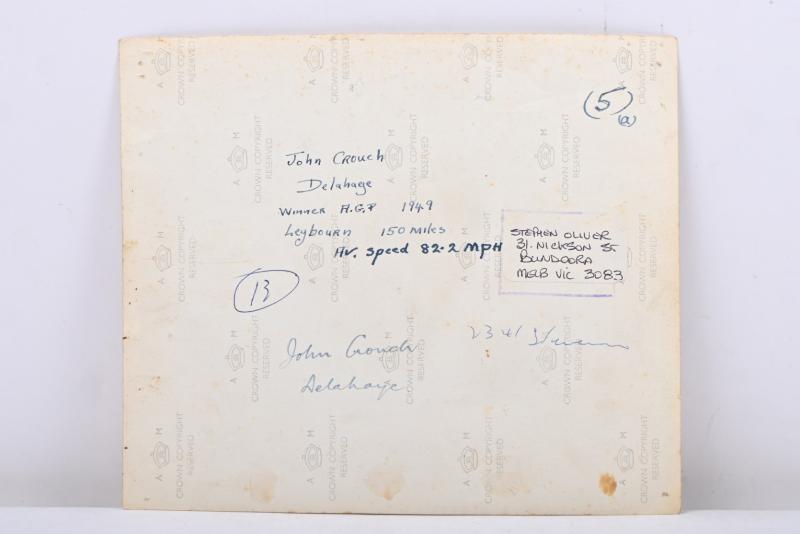 (5)
(a)
John Crouch
Delahage
Winner A.G.P 1949
Leybourn 150 Miles
Av. Speed 82.2 MPH
STEPHEN OLIVER
31. NICKSON ST
BUNDOORA
MELB VIC 3083
13
John Crouch
Delahaye
2341
A M
CROWN COPYRIGHT
RESERVED